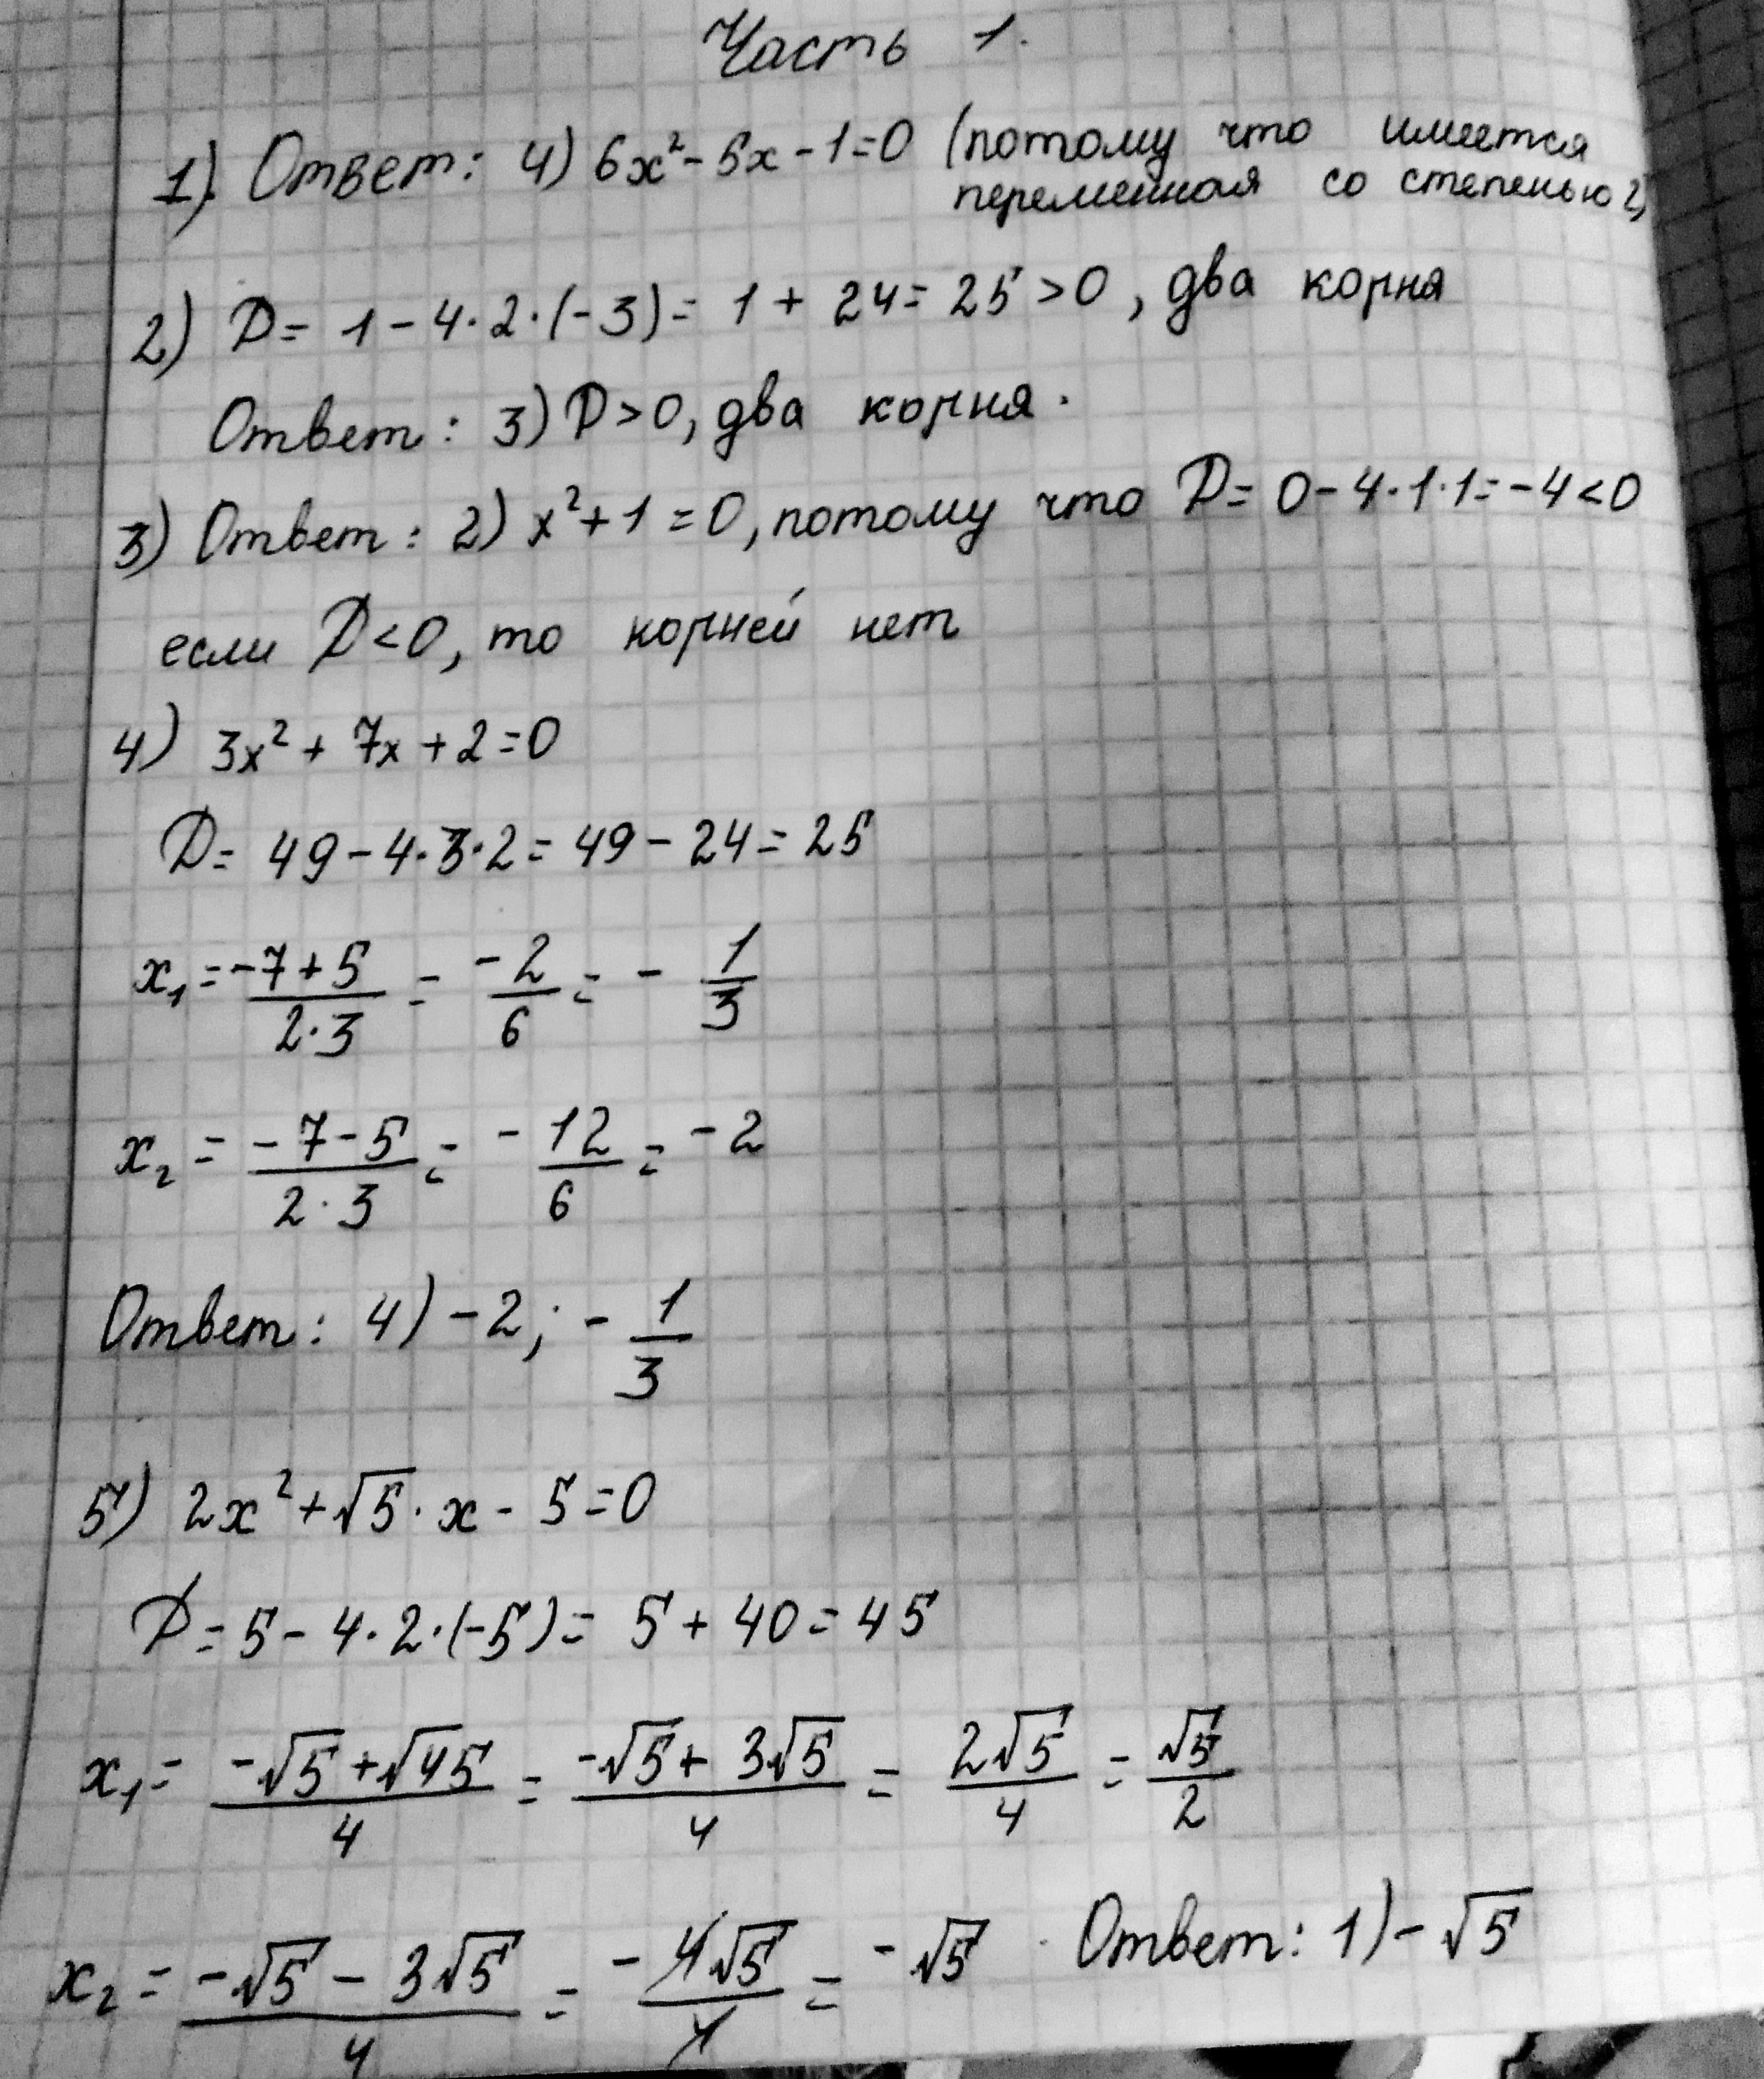 Часть 1.
1). Ответ: 4) 6x² - 5x - 1 = 0 (потому что имеется
переменная со степенью 2)
2) D = 1 - 4·2·(-3) = 1 + 24 = 25 > 0, два корня
Ответ: 3) D > 0, два корня.
3) Ответ: 2) x² + 1 = 0, потому что D = 0 - 4·1·1 = -4 < 0
если D < 0, то корней нет
4) 3x² + 7x + 2 = 0
D = 49 - 4·3·2 = 49 - 24 = 25
x₁ = (-7+5)/(2·3) = -2/6 = - 1/3
x₂ = (-7-5)/(2·3) = - 12/6 = -2
Ответ: 4) -2; - 1/3
5) 2x² + √5 · x - 5 = 0
D = 5 - 4·2·(-5) = 5 + 40 = 45
x₁ = (-√5 + √45)/4 = (-√5 + 3√5)/4 = 2√5/4 = √5/2
x₂ = (-√5 - 3√5)/4 = -4√5/4 = -√5 Ответ: 1) -√5